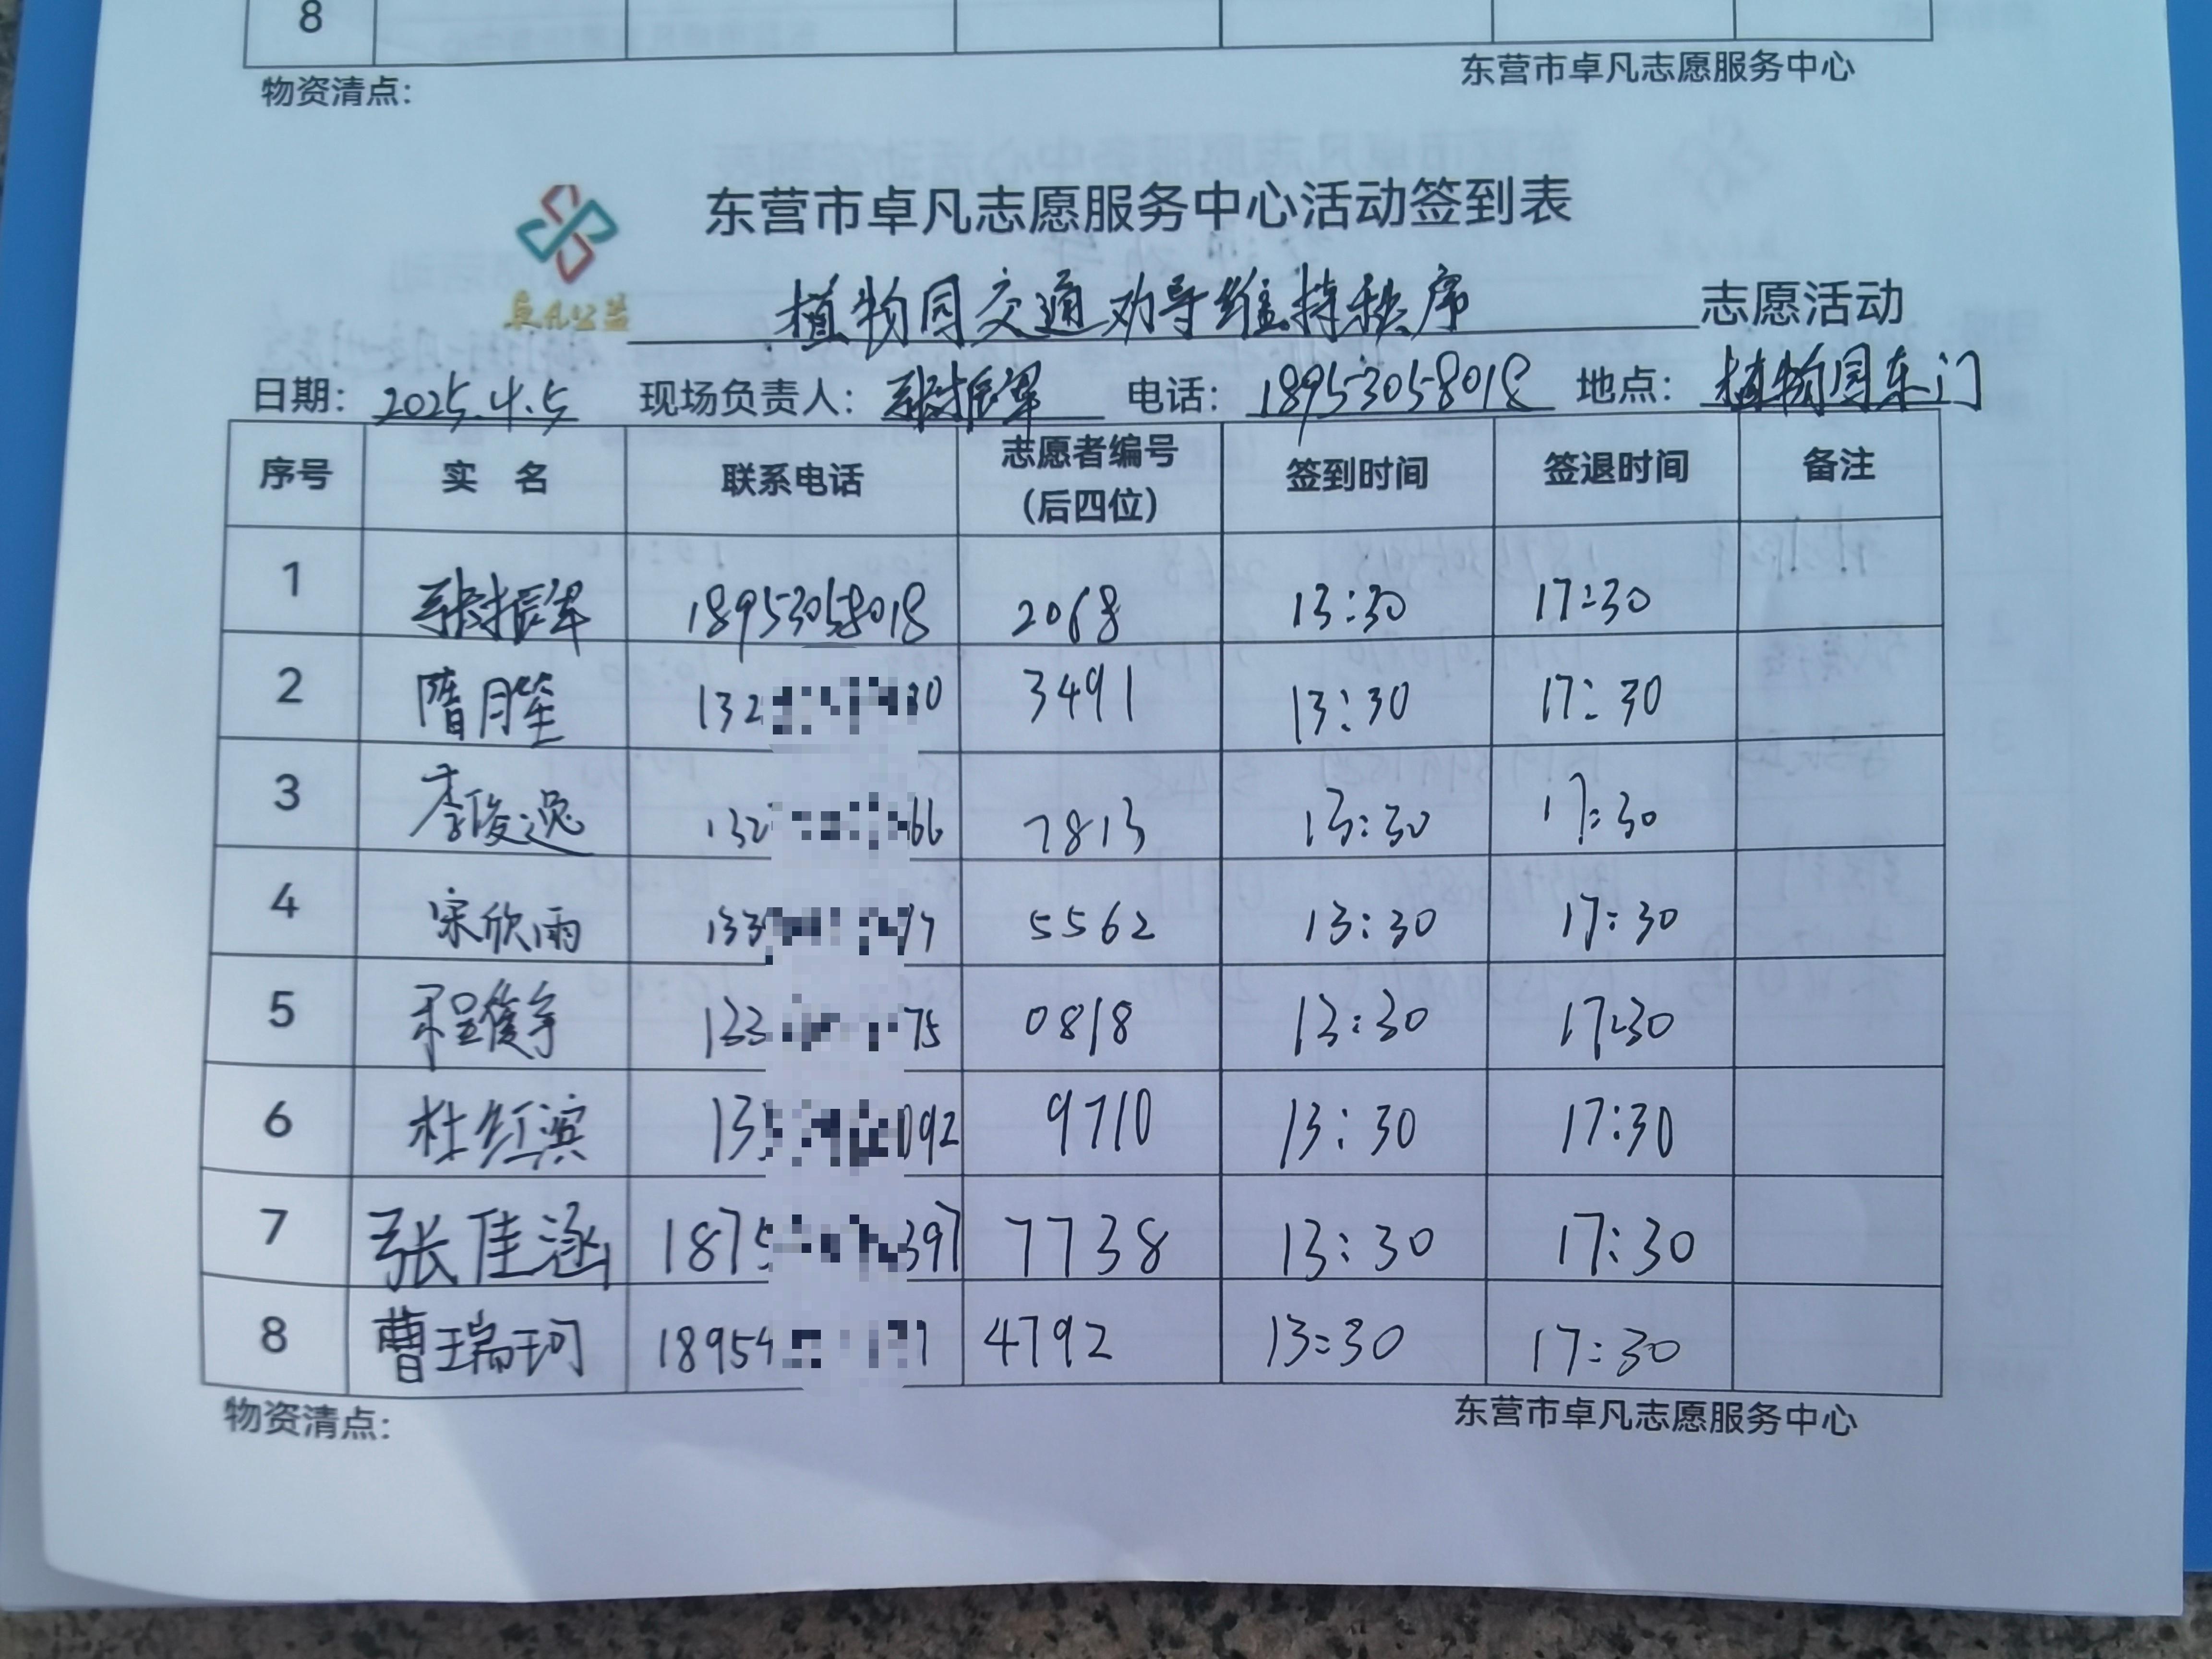 8
物资清点：
东营市卓凡志愿服务中心
东营市卓凡志愿服务中心活动签到表
卓凡公益
植物园交通劝导维持秩序 志愿活动
日期：2025.4.5 现场负责人：张振军 电话：18953058018 地点：植物园东门
序号 实 名 联系电话 志愿者编号（后四位） 签到时间 签退时间 备注
1 张振军 18953058018 2068 13:30 17:30
2 隋月笙 132 30 3491 13:30 17:30
3 李俊逸 132 66 7813 13:30 17:30
4 宋欣雨 133 77 5562 13:30 17:30
5 程俊宇 133 75 0818 13:30 17:30
6 杜红滨 13 092 9710 13:30 17:30
7 张佳涵 1875 397 7738 13:30 17:30
8 曹瑞珂 18954 7 4792 13:30 17:30
物资清点：
东营市卓凡志愿服务中心